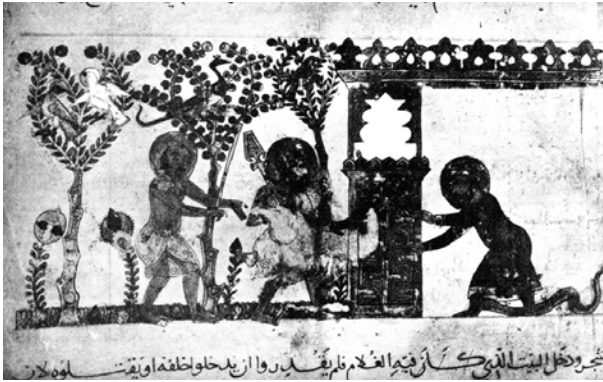 شجر ودخل البيت الذي كان فيه الغلام فلم يقدروا ان يدخلوا خلفه او يقتلوه لان